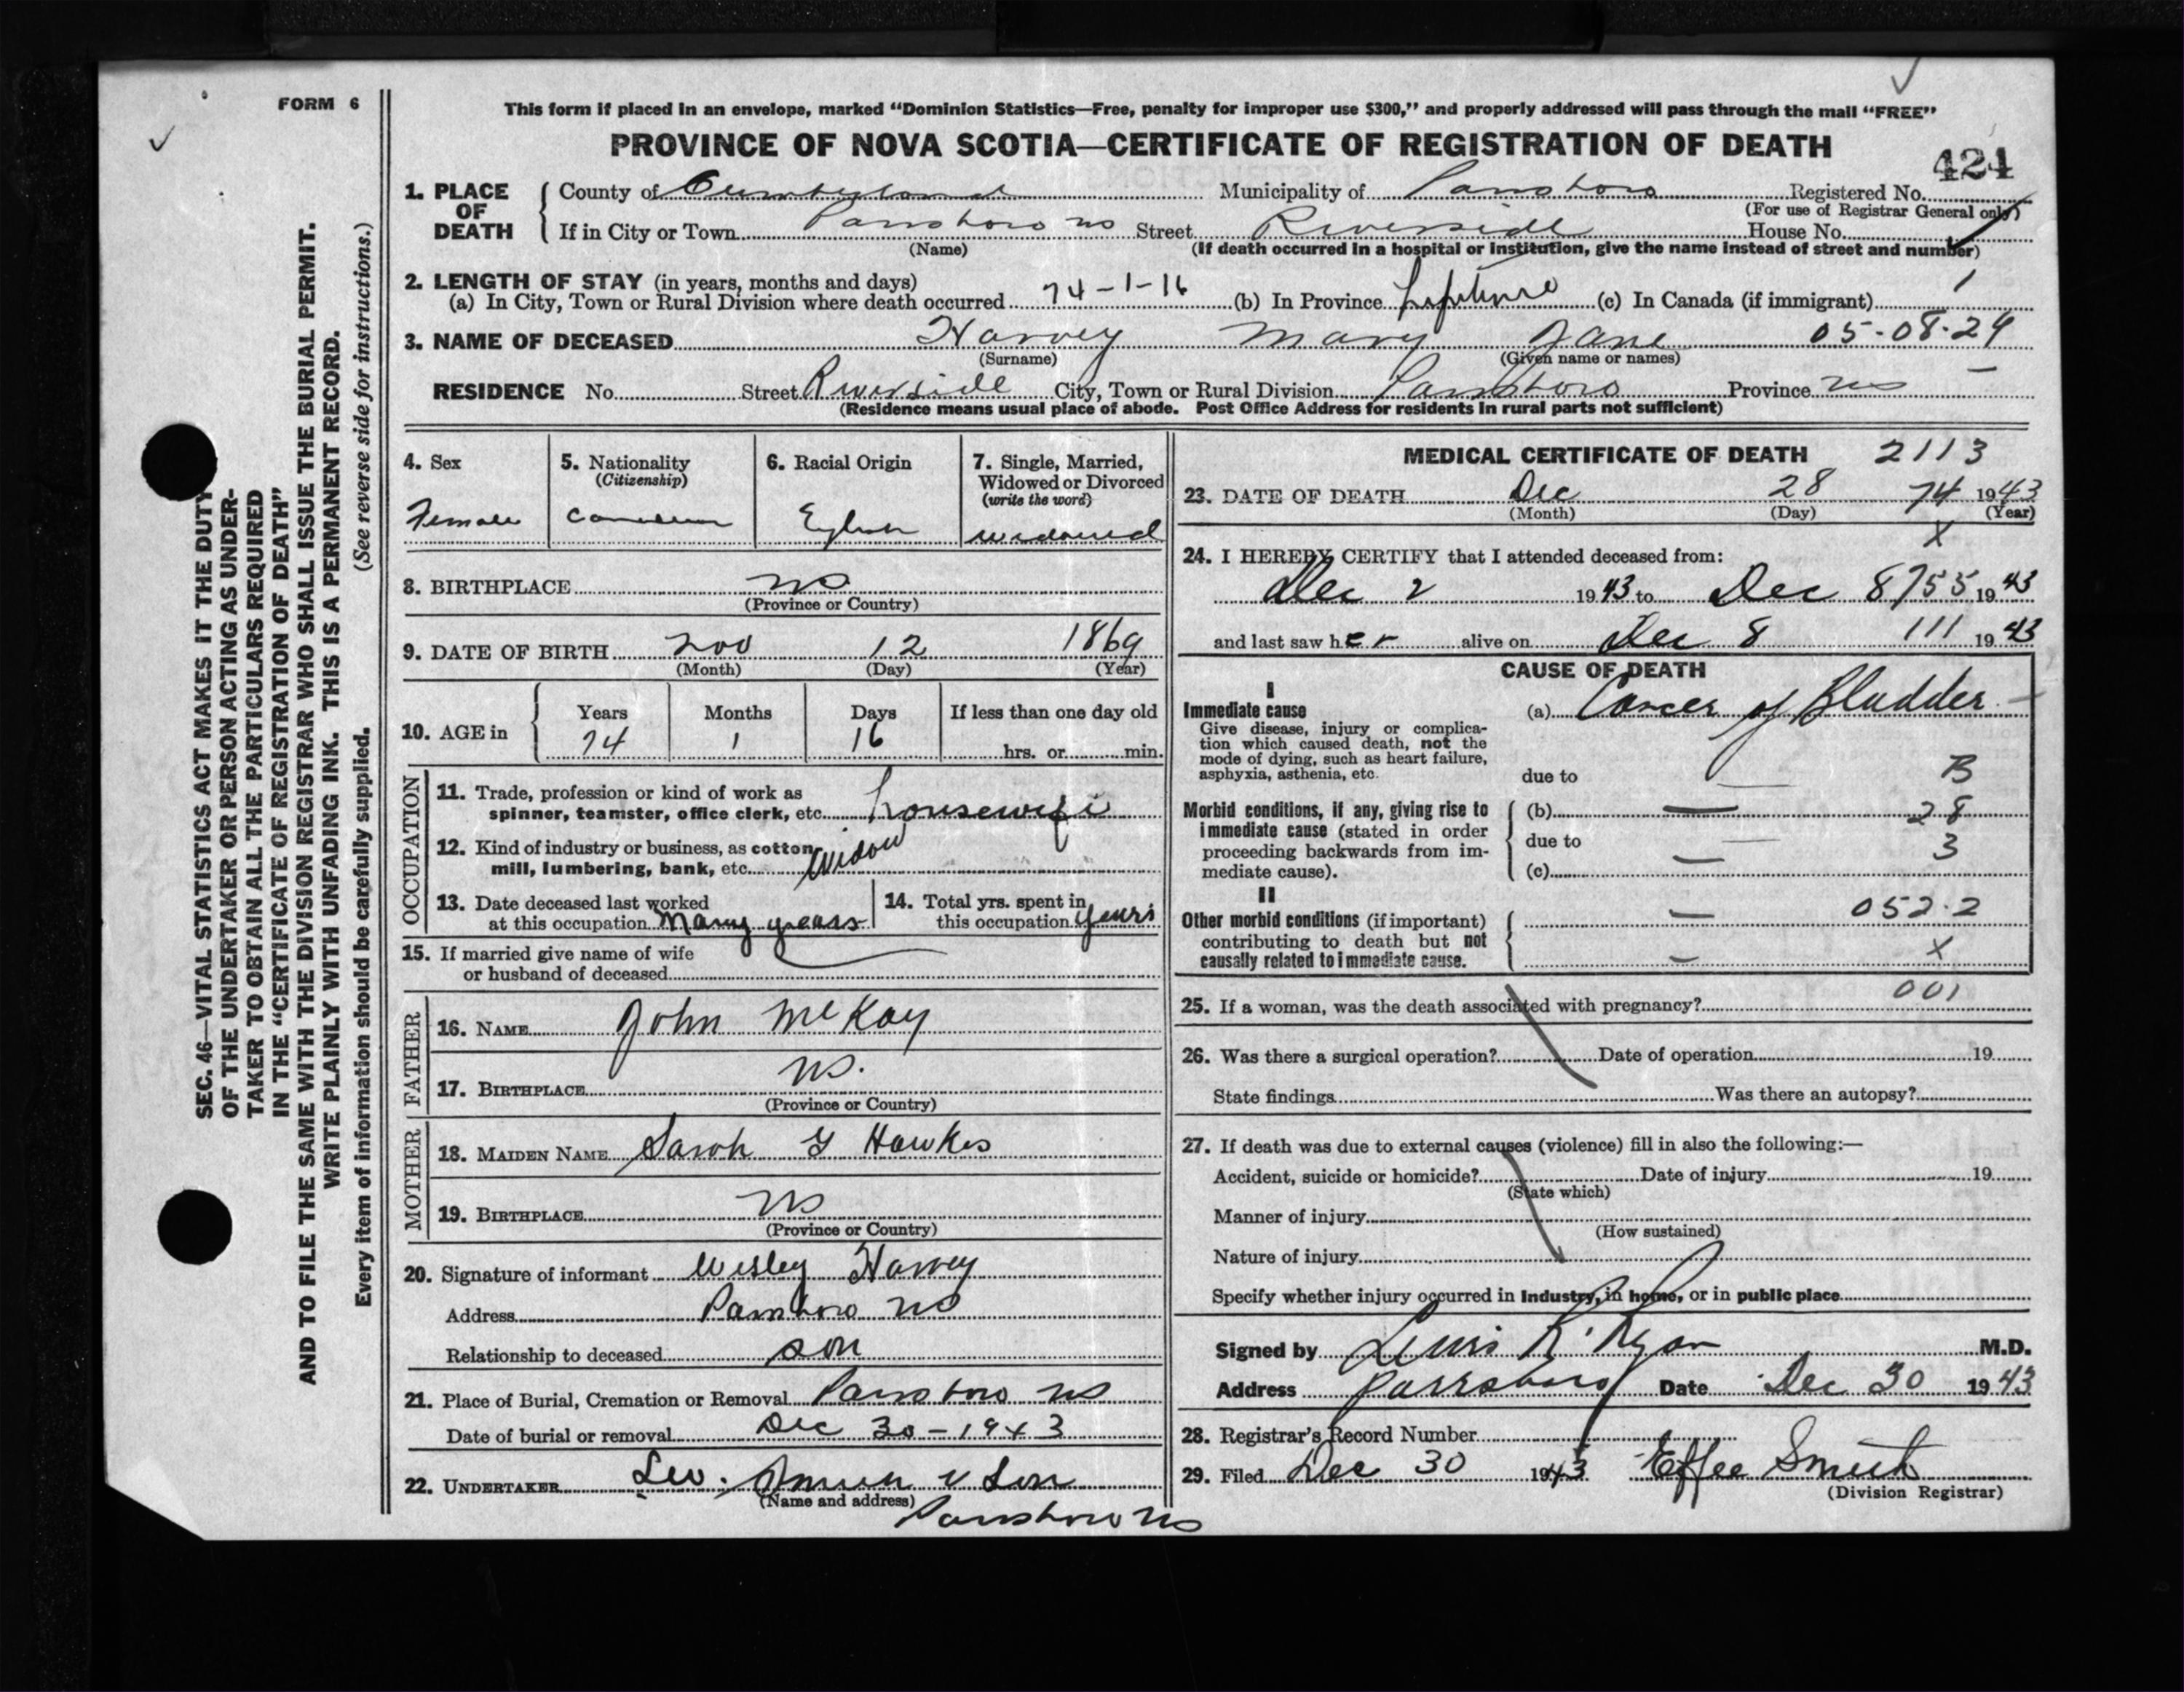 FORM 6
This form if placed in an envelope, marked "Dominion Statistics—Free, penalty for improper use $300," and properly addressed will pass through the mail "FREE"
PROVINCE OF NOVA SCOTIA—CERTIFICATE OF REGISTRATION OF DEATH
424
1. PLACE OF DEATH County of Cumberland Municipality of Parrsboro Registered No.
(For use of Registrar General only)
If in City or Town Parrsboro NS Street Riverside House No.
(Name) (If death occurred in a hospital or institution, give the name instead of street and number)
2. LENGTH OF STAY (in years, months and days)
(a) In City, Town or Rural Division where death occurred 74-1-16 (b) In Province Lifetime (c) In Canada (if immigrant) 1
3. NAME OF DECEASED Harvey Mary Jane 05-08-29
(Surname) (Given name or names)
RESIDENCE No. Street Riverside City, Town or Rural Division Parrsboro Province NS
(Residence means usual place of abode. Post Office Address for residents in rural parts not sufficient)
4. Sex
Female
5. Nationality
(Citizenship)
Canadian
6. Racial Origin
English
7. Single, Married, Widowed or Divorced
(write the word)
widowed
8. BIRTHPLACE NS
(Province or Country)
9. DATE OF BIRTH Nov 12 1869
(Month) (Day) (Year)
10. AGE in Years Months Days If less than one day old
74 1 16 hrs. or min.
OCCUPATION
11. Trade, profession or kind of work as
spinner, teamster, office clerk, etc. housewife
12. Kind of industry or business, as cotton
mill, lumbering, bank, etc. Widow
13. Date deceased last worked
at this occupation Many years
14. Total yrs. spent in
this occupation years
15. If married give name of wife
or husband of deceased
FATHER
16. NAME John McKay
17. BIRTHPLACE NS.
(Province or Country)
MOTHER
18. MAIDEN NAME Sarah Y Hawkes
19. BIRTHPLACE NS
(Province or Country)
20. Signature of informant Wesley Harvey
Address Parrsboro NS
Relationship to deceased son
21. Place of Burial, Cremation or Removal Parrsboro NS
Date of burial or removal Dec 30-1943
22. UNDERTAKER & Son
(Name and address)
Parrsboro NS
MEDICAL CERTIFICATE OF DEATH 2113
23. DATE OF DEATH Dec 28 74 1943
(Month) (Day) (Year)
X
24. I HEREBY CERTIFY that I attended deceased from:
Dec 2 1943 to Dec 8 755 1943
and last saw her alive on Dec 8 111 1943
CAUSE OF DEATH
I
Immediate cause
Give disease, injury or complication which caused death, not the mode of dying, such as heart failure, asphyxia, asthenia, etc.
(a) Cancer of Bladder
due to B
Morbid conditions, if any, giving rise to immediate cause (stated in order proceeding backwards from immediate cause).
(b) — 28
due to — 3
(c) —
II
Other morbid conditions (if important) contributing to death but not causally related to immediate cause.
— 052.2
— X
001
25. If a woman, was the death associated with pregnancy?
26. Was there a surgical operation? Date of operation 19
State findings Was there an autopsy?
27. If death was due to external causes (violence) fill in also the following:—
Accident, suicide or homicide? Date of injury 19
(State which)
Manner of injury
(How sustained)
Nature of injury
Specify whether injury occurred in Industry, in home, or in public place
Signed by R. Ryan M.D.
Address Parrsboro Date Dec 30 1943
28. Registrar's Record Number
29. Filed Dec 30 1943 Effee Smith
(Division Registrar)
SEC. 46—VITAL STATISTICS ACT MAKES IT THE DUTY
OF THE UNDERTAKER OR PERSON ACTING AS UNDER-
TAKER TO OBTAIN ALL THE PARTICULARS REQUIRED
IN THE "CERTIFICATE OF REGISTRATION OF DEATH"
AND TO FILE THE SAME WITH THE DIVISION REGISTRAR WHO SHALL ISSUE THE BURIAL PERMIT.
WRITE PLAINLY WITH UNFADING INK. THIS IS A PERMANENT RECORD.
Every item of information should be carefully supplied. (See reverse side for instructions.)